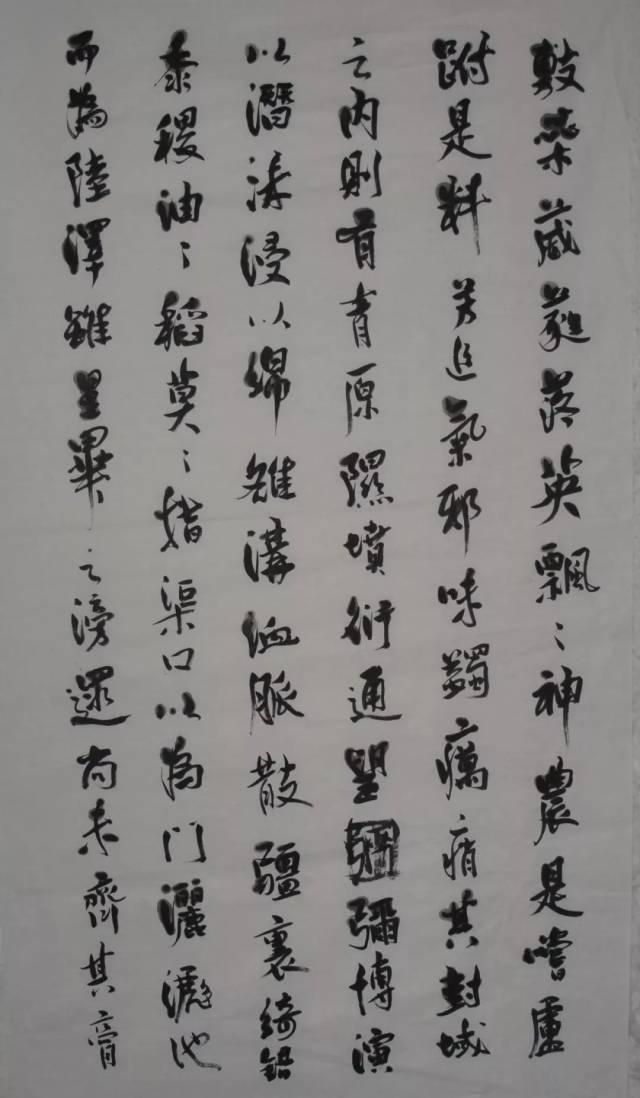 敷蘂葳蕤落英飄〻神農是嘗盧
跗是料芳追氣邪味蠲癘痟其封域
之內則有青原隰墳衍通望彌博演
以潛沫浸以綿雒溝洫脈散疆裏綺錯
黍稷油〻稻莫〻指渠口以為門灑滮池
而為陸澤雖星畢之滂遝尚未齊其膏